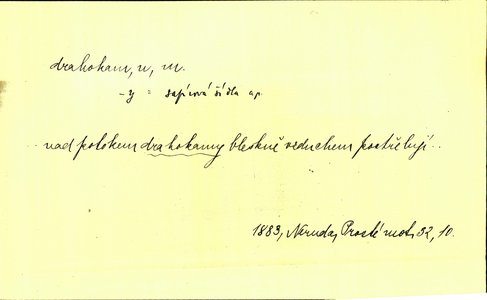 drahokam, u, m.
-y = safírová šídla ap.
nad potokem drahokamy bleskně vzduchem postřebují..
1883, Neruda, Prosté mot. 32, 10.